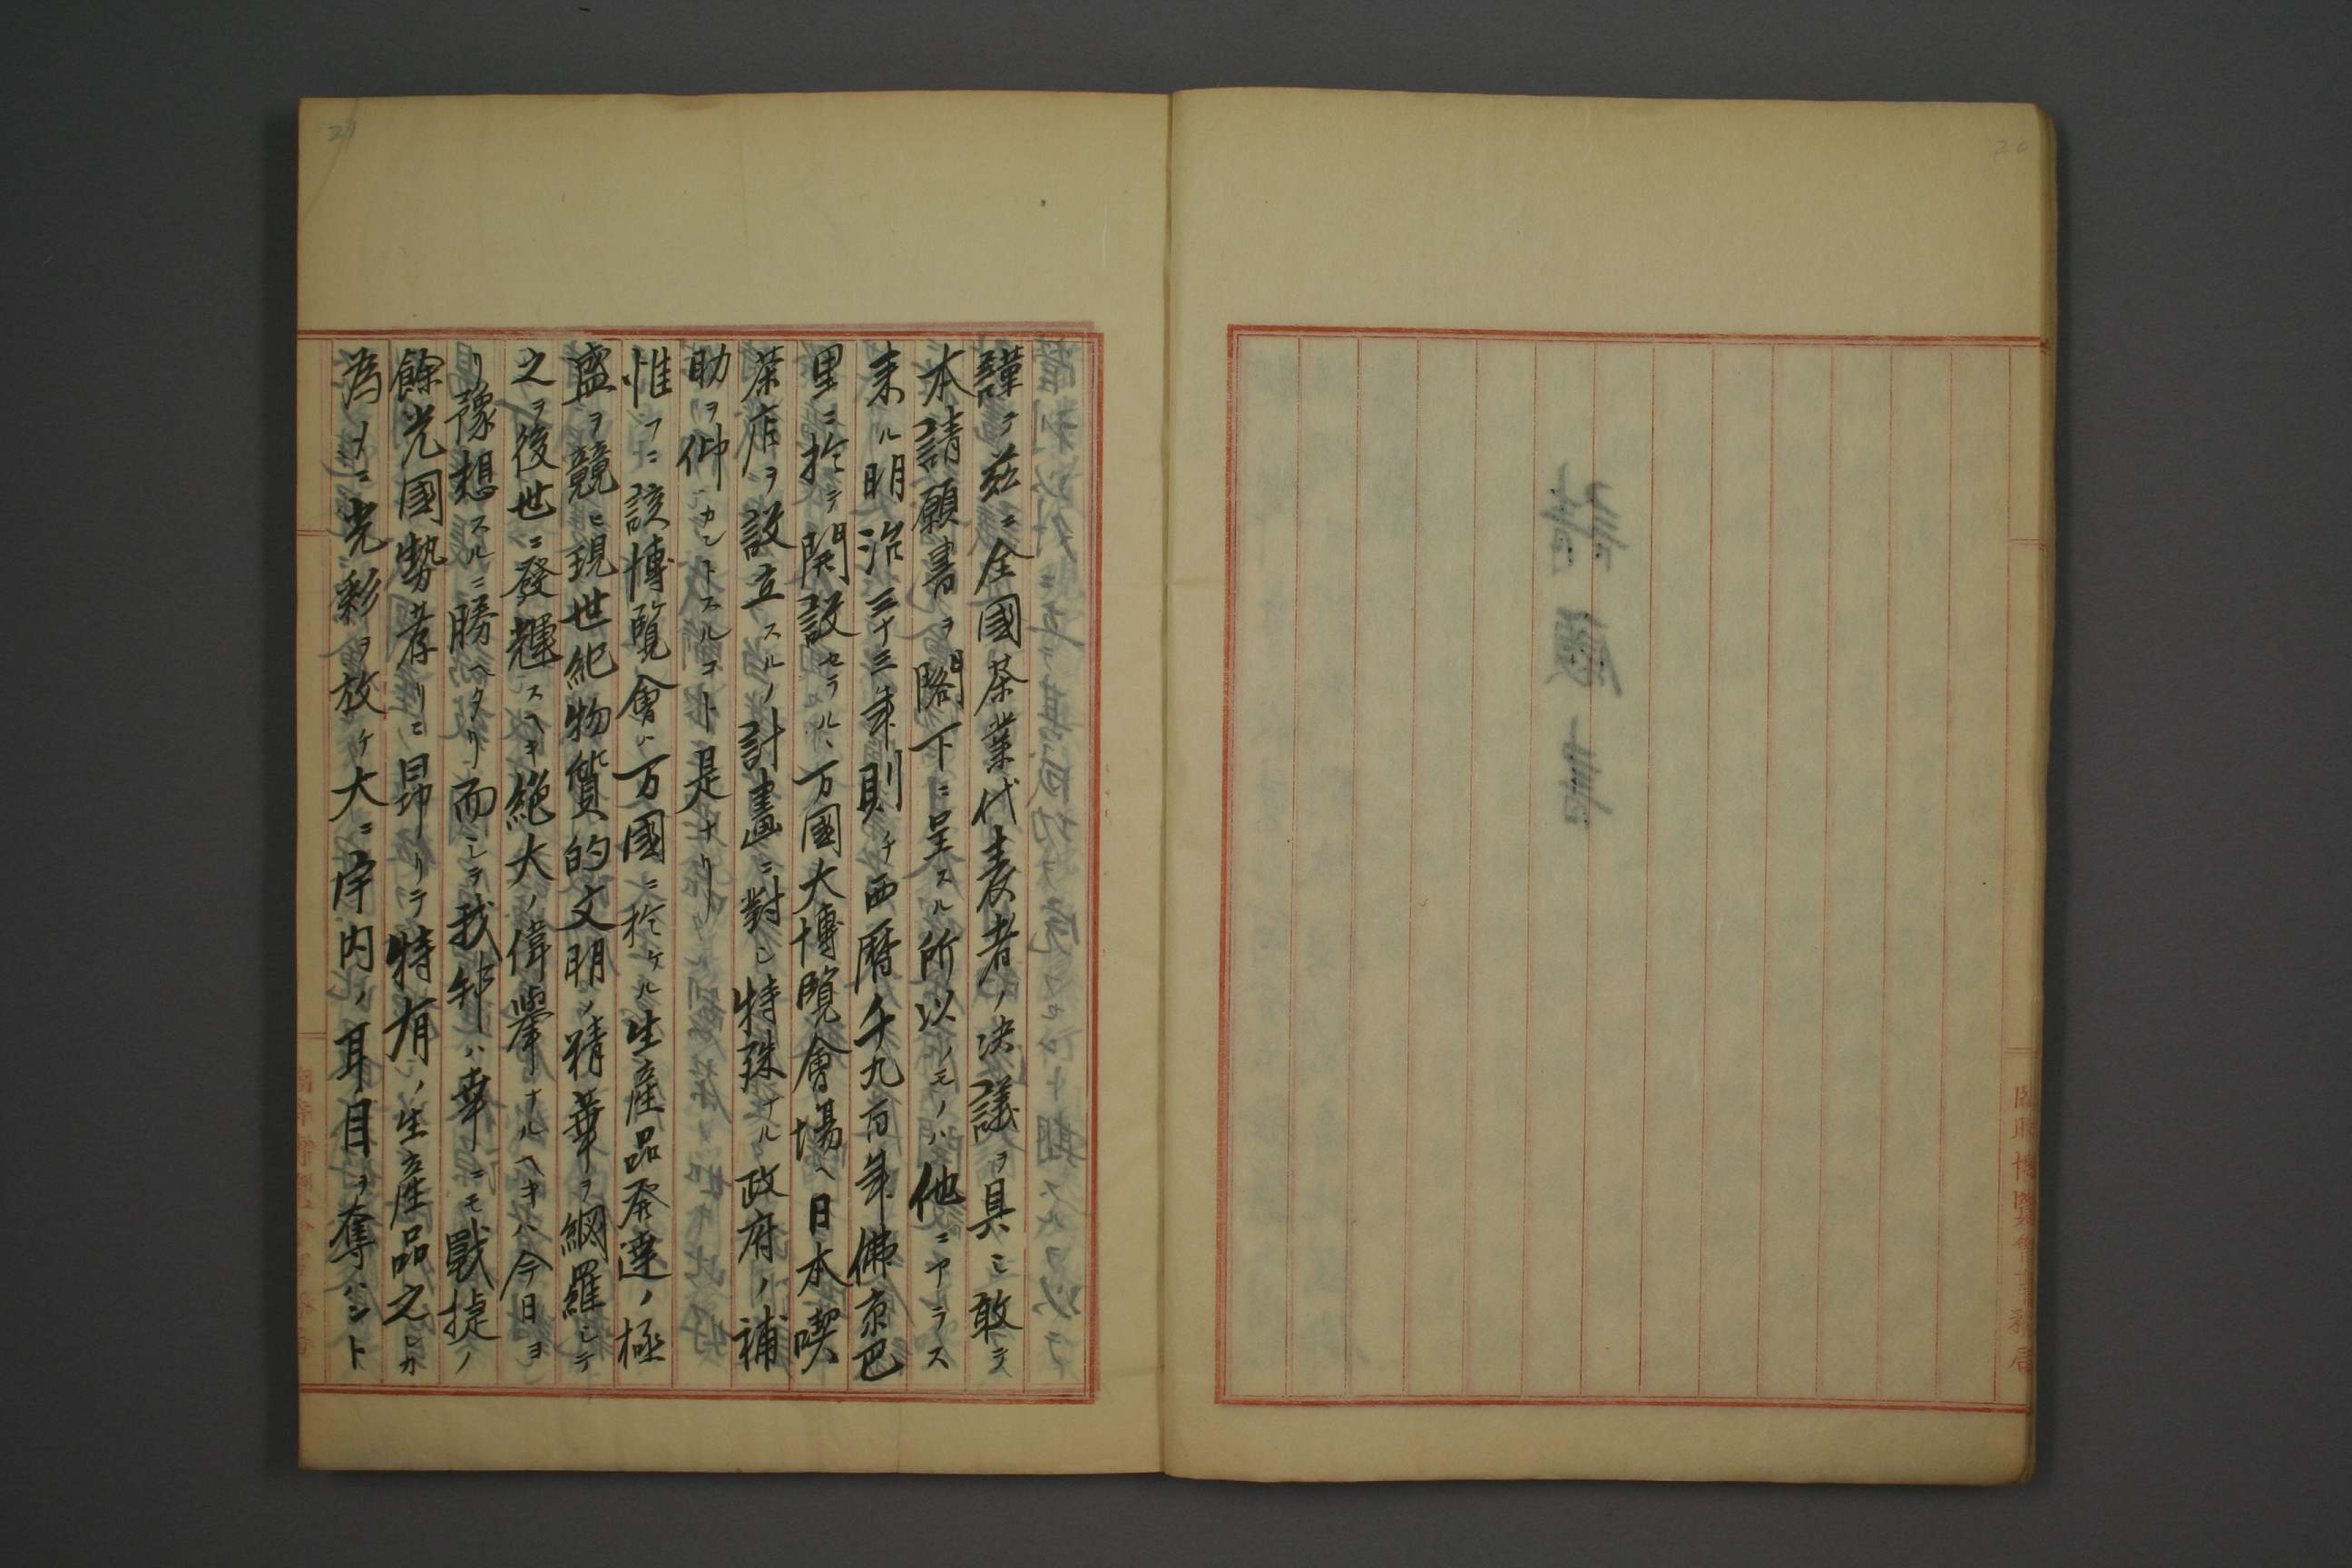 謹テ茲ニ全國茶業代表者ノ决議ヲ具ニ敢テ
本請願書ヲ閣下ニ呈スル所以ノモノハ他ニアラス
来ル明治三十三年則チ西暦千九百年佛京巴
里ニ於テ開設セラルヽ万國大博覧會場ヘ日本喫
茶店ヲ設立スルノ計畫ニ對シ特殊ナル政府ノ補
助ヲ仰カントスルコト是ナリ
惟フニ該博覧會ハ万國ニ於ケル生産品発達ノ極
盛ヲ競ヒ現世紀物質的文明ノ精華ヲ網羅シテ
之ヲ後世ニ發輝スヘキ絶大ノ偉擧ナルヘキハ今日ヨ
リ豫想スルニ勝ヘタリ而シテ我邦ハ幸ニモ戰捷ノ
餘光國勢荐リニ昂リテ特有ノ生産品之レカ
為メニ光彩ヲ放ケ大ニ宇内ノ耳目ヲ奪ハント